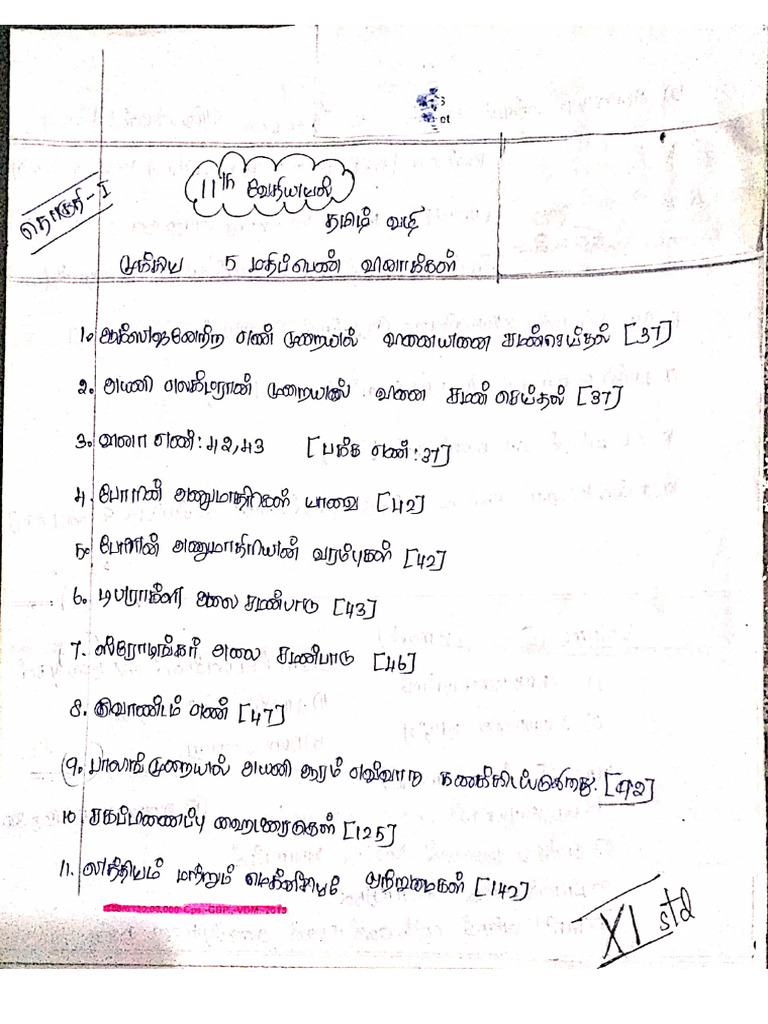 தொகுதி - I
11th வேதியியல்
தமிழ் வழி
முக்கிய 5 மதிப்பெண் வினாக்கள்
1. ஆக்ஸிஜனேற்ற எண் முறையில் வினையினை சமன்செய்தல் [37]
2. அயனி எலக்ட்ரான் முறையில் வினை சமன் செய்தல் [37]
3. வினா எண்: 42,43 [பக்க எண்: 37]
4. போரின் அணுமாதிரிகள் யாவை [42]
5. போரின் அணுமாதிரியின் வரம்புகள் [42]
6. டிபராக்ளி அலை சமன்பாடு [43]
7. ஸ்ரோடிங்கர் அலை சமன்பாடு [46]
8. குவாண்டம் எண் [47]
9. பாலிங் முறையில் அயனி ஆரம் எவ்வாறு கணக்கிடப்படுகிறது. [92]
10. சகப்பிணைப்பு ஹைட்ரைடுகள் [125]
11. லித்தியம் மற்றும் மெக்னீசியம் ஒற்றுமைகள் [142]
XI std